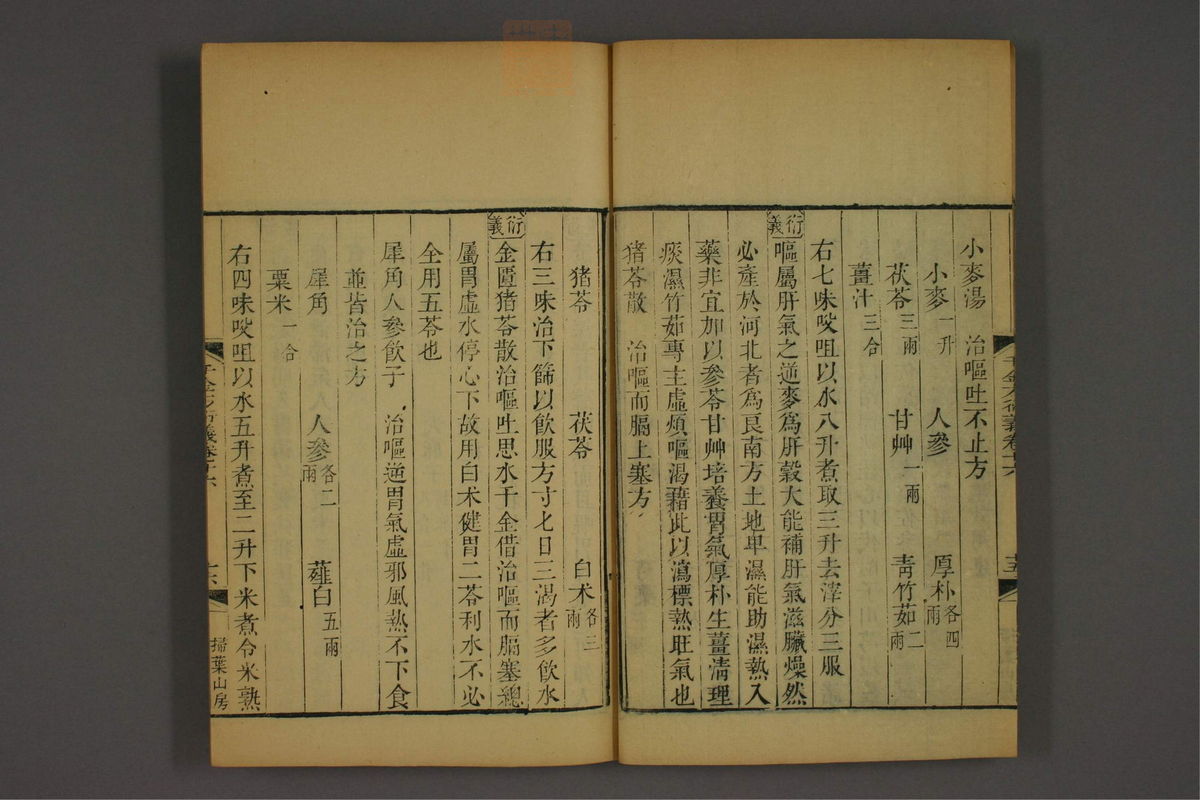 小麥湯　治嘔吐不止方
小麥一升　人參　厚朴各四兩
茯苓三兩　甘艸一兩　靑竹茹二兩
薑汁三合
右七味㕮咀以水八升煮取三升去滓分三服
衍義
嘔屬肝氣之逆麥爲肝穀大能補肝氣滋臟燥然
必產於河北者爲良南方土地卑濕能助濕熱入
藥非宜加以參苓甘艸培養胃氣厚朴生薑清理
痰濕竹茹專主虛煩嘔渴藉此以瀉標熱旺氣也
豬苓散　治嘔而膈上塞方
豬苓　茯苓　白术各三兩
右三味治下篩以飲服方寸匕日三渴者多飲水
衍義
金匱豬苓散治嘔吐思水千金借治嘔而膈塞總
屬胃虛水停心下故用白术健胃二苓利水不必
全用五苓也
犀角人參飲子　治嘔逆胃氣虛邪風熱不下食
並皆治之方
犀角　人參各二兩　薤白五兩
粟米一合
右四味㕮咀以水五升煮至二升下米煮令米熟
千金方衍義卷十六
掃葉山房